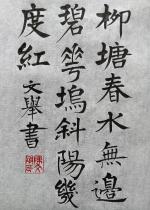 柳塘春水無邊
碧花塢斜陽幾
度紅
文舉書